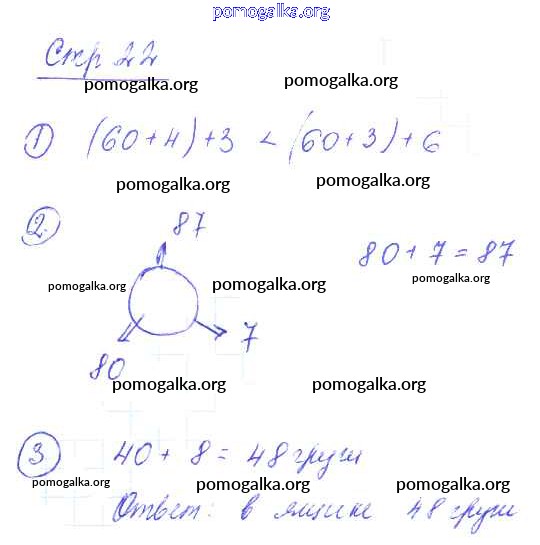 pomogalka.org
Стр 22
pomogalka.org pomogalka.org
1 (60+4)+3 < (60+3)+6
pomogalka.org pomogalka.org
2. 87
80+7=87
pomogalka.org pomogalka.org pomogalka.org
7
80
pomogalka.org pomogalka.org
3 40+8=48 груш
pomogalka.org pomogalka.org pomogalka.org
Ответ: в ящике 48 груш